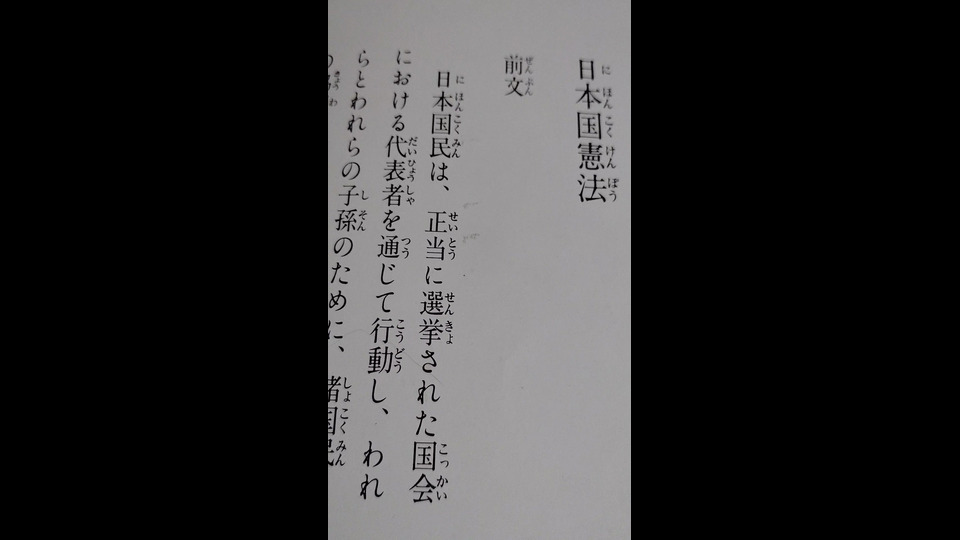 日本国憲法
前文
日本国民は、正当に選挙された国会
における代表者を通じて行動し、われ
らとわれらの子孫のために、諸国民